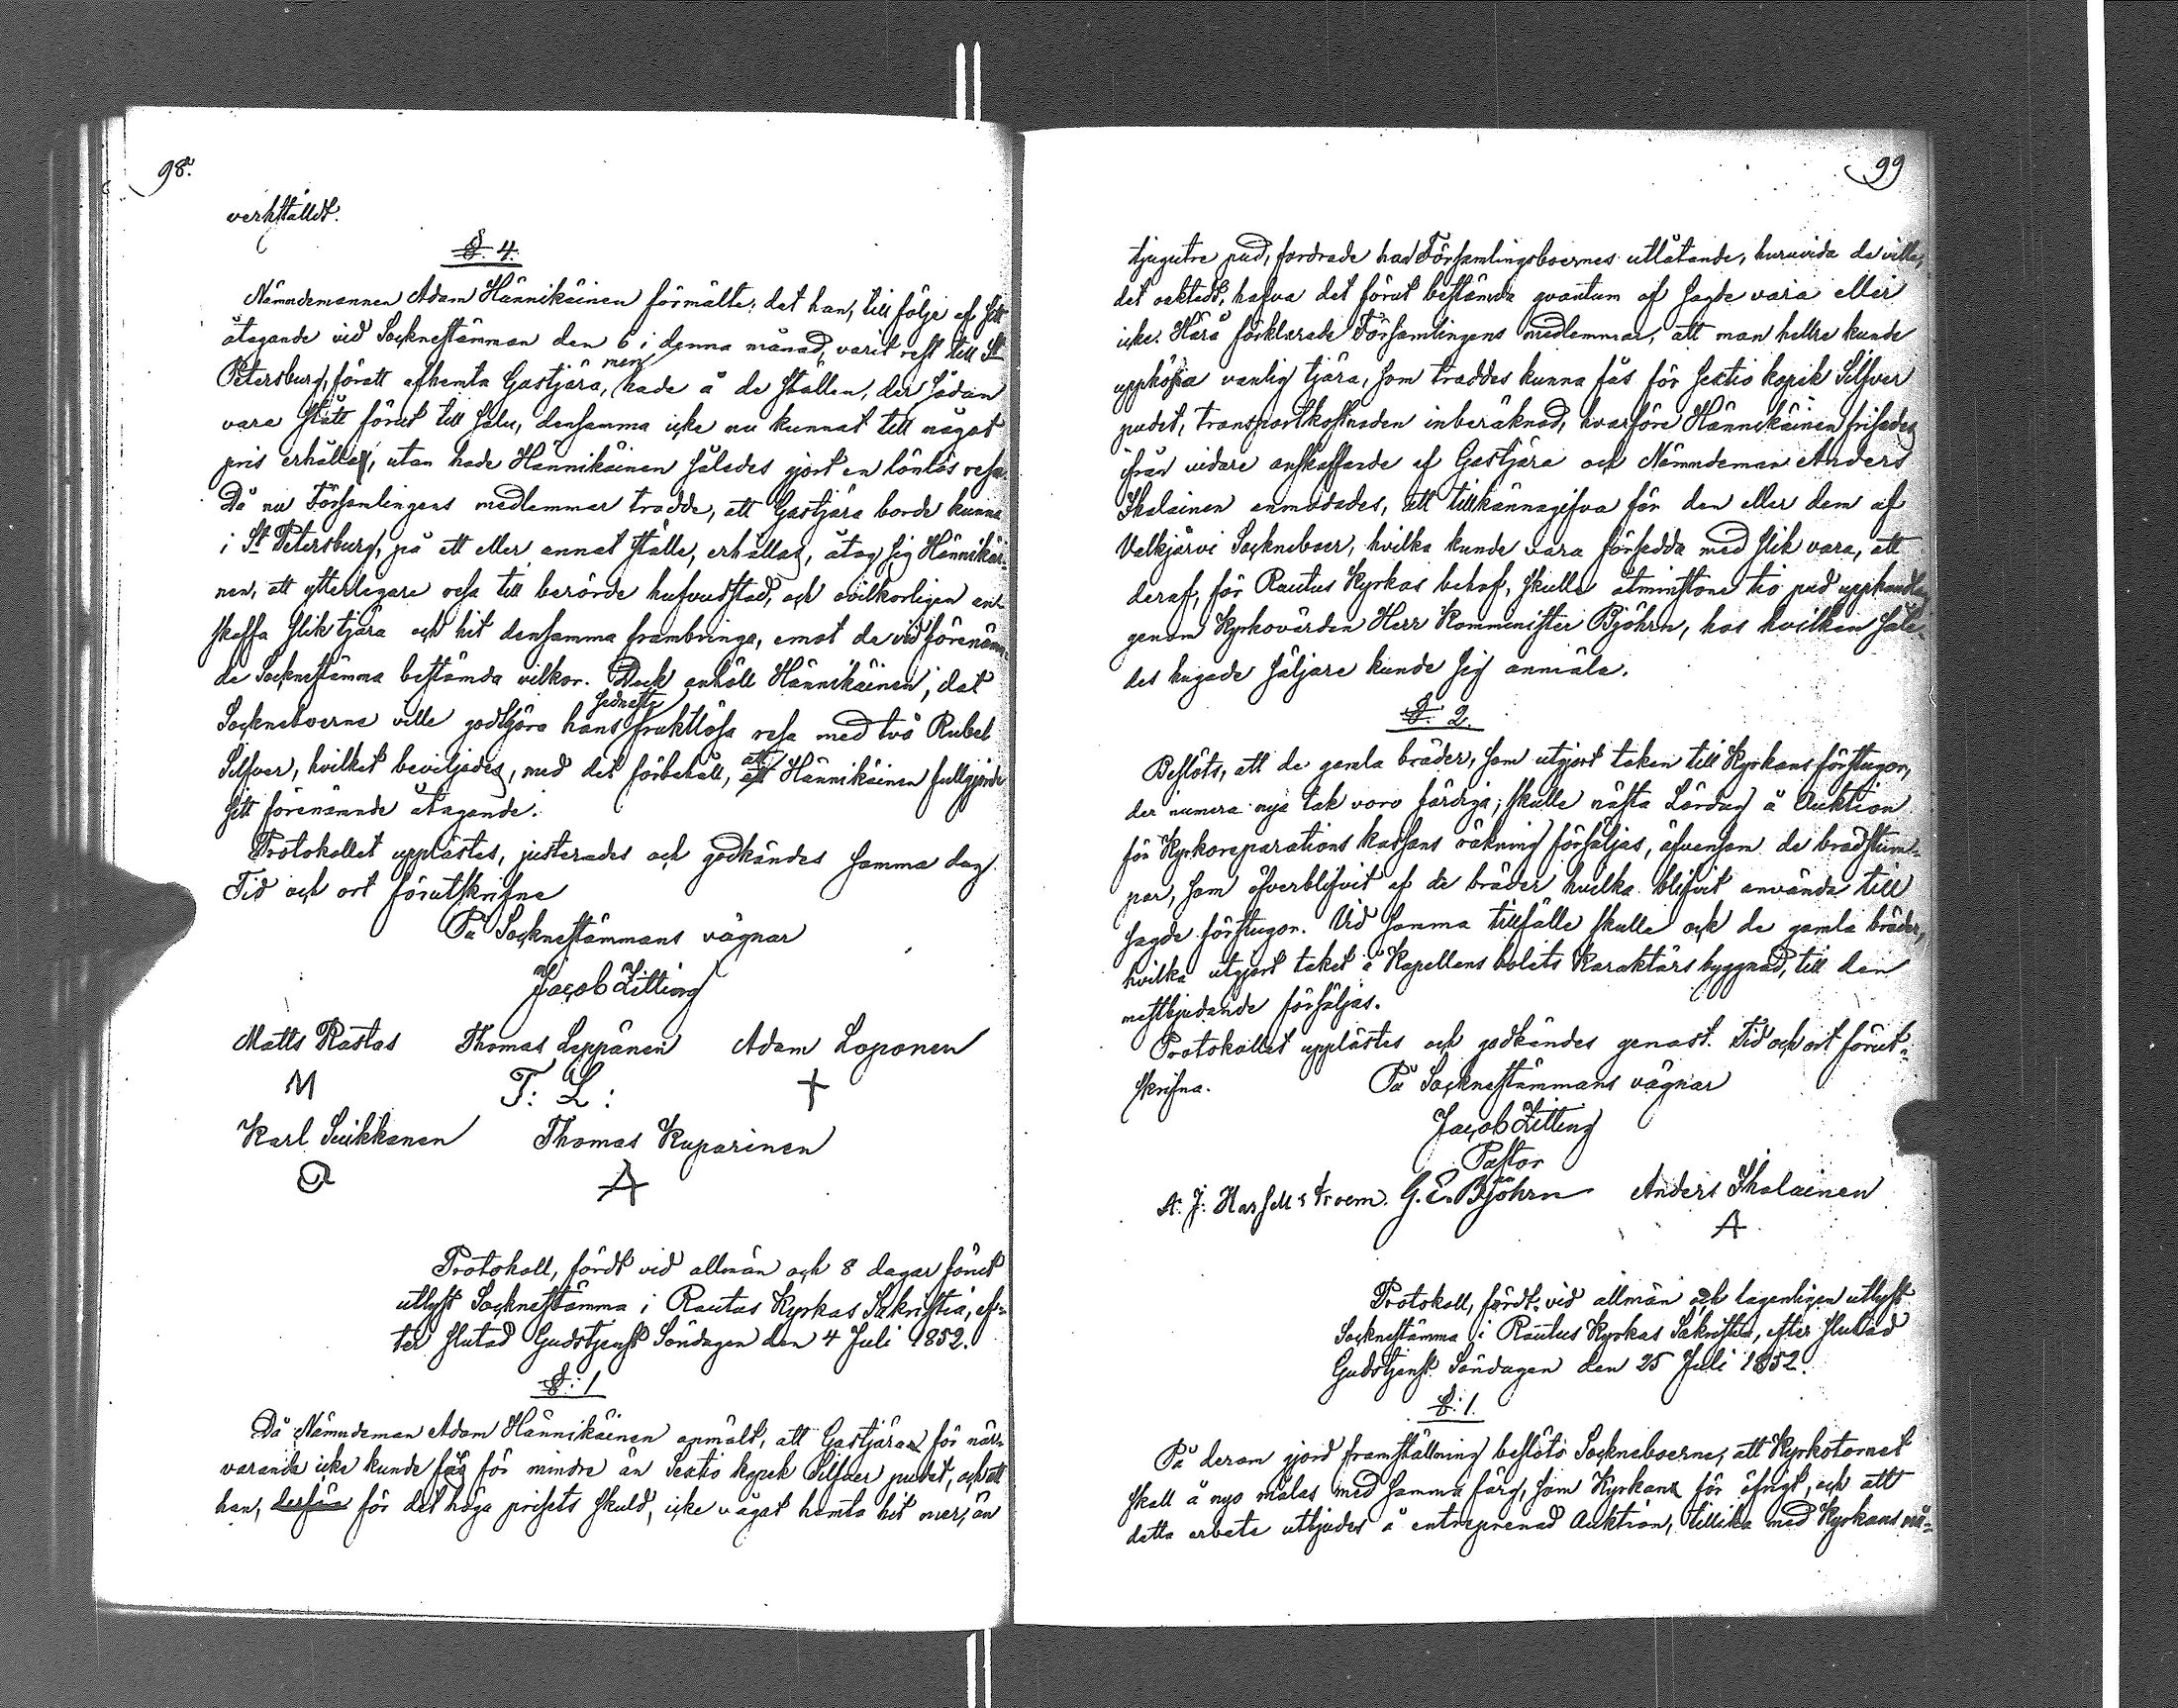 98.
verkställdt.
§. 4.
Nämndemannen Adam Hännikäinen förmälte: det han, till följe af sitt
åtagande vid Sockenstämman den 6 i denna månad, varit rest till St
Petersburg, föratt afhemta Gastjära, men hade å de ställen, der sådan
vara stått förut till salu, densamma icke nu kunnat till något
pris erhållas, utan hade Hännikäinen således gjort en lönlös resa.
Då nu Församlingens medlemmar trodde, att Gastjära borde kunna
i St Petersburg, på ett eller annat ställe, erhållas, åtog sig Hännikäi-
nen, att ytterligare resa till berörde hufvudstad, och ovilkorligen an-
skaffa slik tjära och hit densamma frambringa, emot de vid förenämn-
de Sockenstämma bestämda vilkor. Dock anhöll Hännikäinen, det
Sockneboerne ville godtgöra hans sednaste fruktlösa resa med två Rubel
Silfver, hvilket beviljades, med det förbehåll, att Hännikäinen fullgjorde
sitt förenämnde åtagande.
Protokollet upplästes, justerades och godkändes samma dag.
Tid och ort förutskrifne
På Socknestämmans vägnar
Jacob Zitting
Matts Rastas Thomas Leppänen Adam Loponen
M T: L: +
Karl Suikkanen Thomas Kuparinen
A
Protokoll, fördt vid allmän och 8 dagar förut
utlyst Socknestämma i Rautus Kyrkas Sakristia, ef-
ter slutad Gudstjenst Söndagen den 4 Juli 1852.
§: 1
Då Nämndeman Adam Hännikäinen anmält, att Gastjära för när-
varande icke kunde fås för mindre än Sextio kopek Silfver pudet, och att
han, derföre för det höga prisets skuld, icke vågat hemta hit mer, än
99
tjugutre pud, fordrade han Församlingsboernes utlåtande, huruvida de ville,
det oaktadt, hafva det förut bestämda qvantum af sagde vara eller
icke. Härå förklarade Församlingens medlemmar, att man hellre kunde
uppköpa vanlig tjära, som troddes kunna fås för sextio kopek Silfver
pudet, transportkostnaden inberäknad, hvarföre Hännikäinen frisades
ifrån vidare anskaffande af Gastjära och Nämndeman Anders
Ihalainen anmodades, att tillkännagifva för den eller dem af
Valkjärvi Sockneboer, hvilka kunde vara försedda med slik vara, att
deraf, för Rautus Kyrkas behof, skulle åtminstone tio pud upphandlas
genom Kyrkovärden Herr Kommenister Björhn, hos hvilken såle-
des hugade säljare kunde sig anmäla.
§. 2.
Beslöts, att de gamla bräder, som utgjort taken till Kyrkans förstugor,
der numera nya tak voro färdiga, skulle nästa Lördag å Auktion
för Kyrkoreparations kassans räkning försäljas, äfvensom de brädstum-
par, som öfverblifvit af de bräder hvilka blifvit använda till
sagde förstugor. Vid samma tillfälle skulle och de gamla bräder,
hvilka utgjort taket å Kapellans bolets Karaktärs byggnad, till den
mestbjudande försäljas.
Protokollet upplästes och godkändes genast. Tid och ort förut-
skrifna. På Socknestämmans vägnar
Jacob Zitting
Pastor
A. J. G. E. Björhn Anders Ihalainen
A
Protokoll, fördt vid allmän och lagenligen utlyst
Socknestämma i Rautus Kyrkas Sakristia, efter slutad
Gudstjenst Söndagen den 25 Juli 1852.
§: 1.
På derom gjord framställning beslöto Sockneboerne, att Kyrkotornet
skall å nyo målas med samma färg, som Kyrkan för öfrigt, och att
detta arbete utbjudes å entreprenad Auktion, tillika med Kyrkans